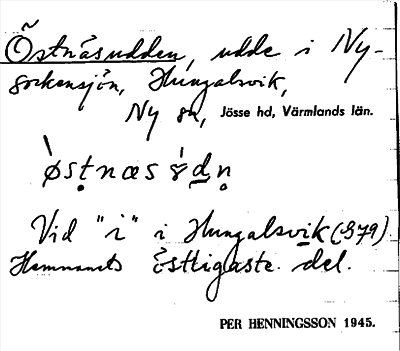 Östnäsudden, udde i Ny-
sockensjön, Hungalsvik,
Ny sn, Jösse hd, Värmlands län.
`østnæs ɤ́dn̥
Vid "i" i Hungalsvik (S79)
Hemmanets östligaste del.
PER HENNINGSSON 1945.